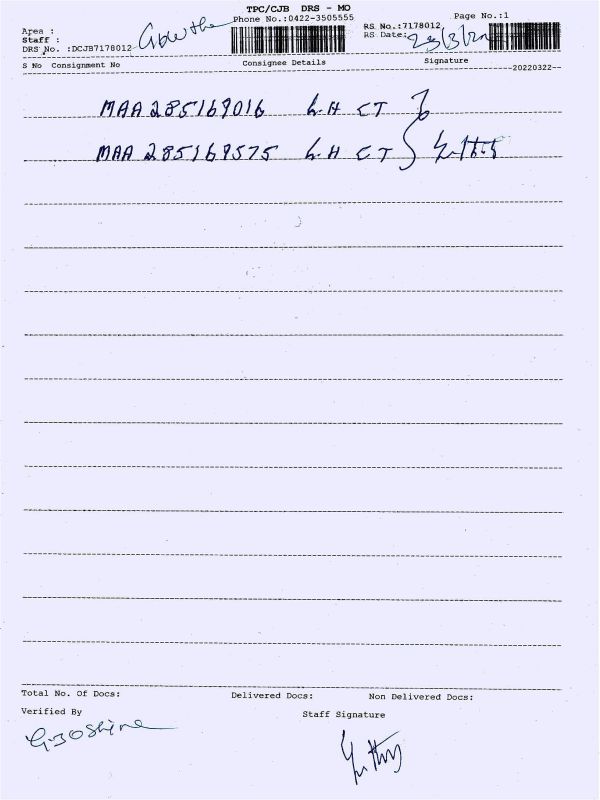 TPC/CJB DRS - MO
Phone No.:0422-3505555
Page No.:1
Area :
RS No.:7178012
Staff :
RS Date: 23/3/22
DRS No. :DCJB7178012
S No Consignment No Consignee Details Signature
--20220322--
MAA 285169016 L H CT
MAA 285169575 L H CT
Total No. Of Docs: Delivered Docs: Non Delivered Docs:
Verified By
Staff Signature